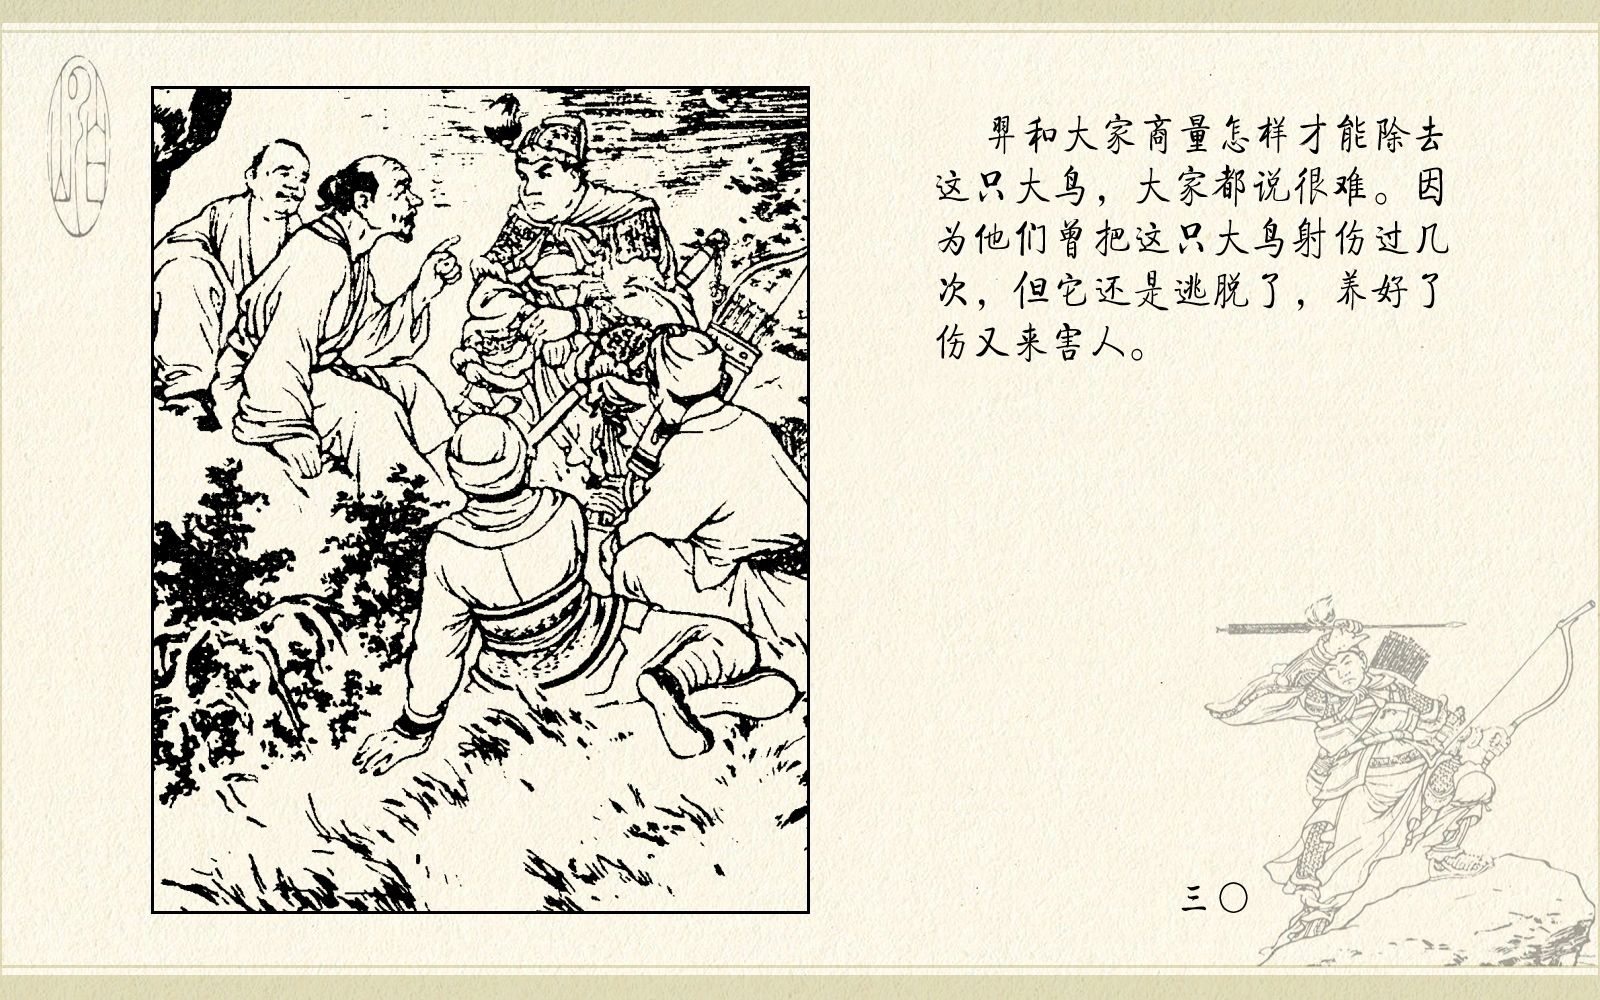 羿和大家商量怎样才能除去
这只大鸟，大家都说很难。因
为他们曾把这只大鸟射伤过几
次，但它还是逃脱了，养好了
伤又来害人。
三〇